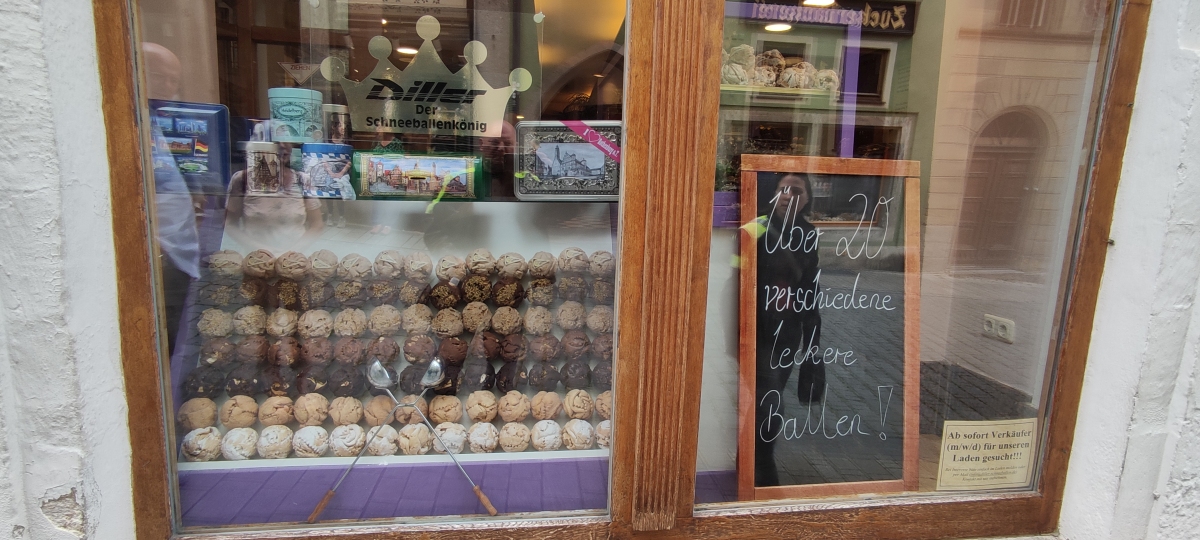 Diller
Der
Schneeballenkönig
Über 20
verschiedene
leckere
Ballen!
Ab sofort Verkäufer
(m/w/d) für unseren
Laden gesucht!!!